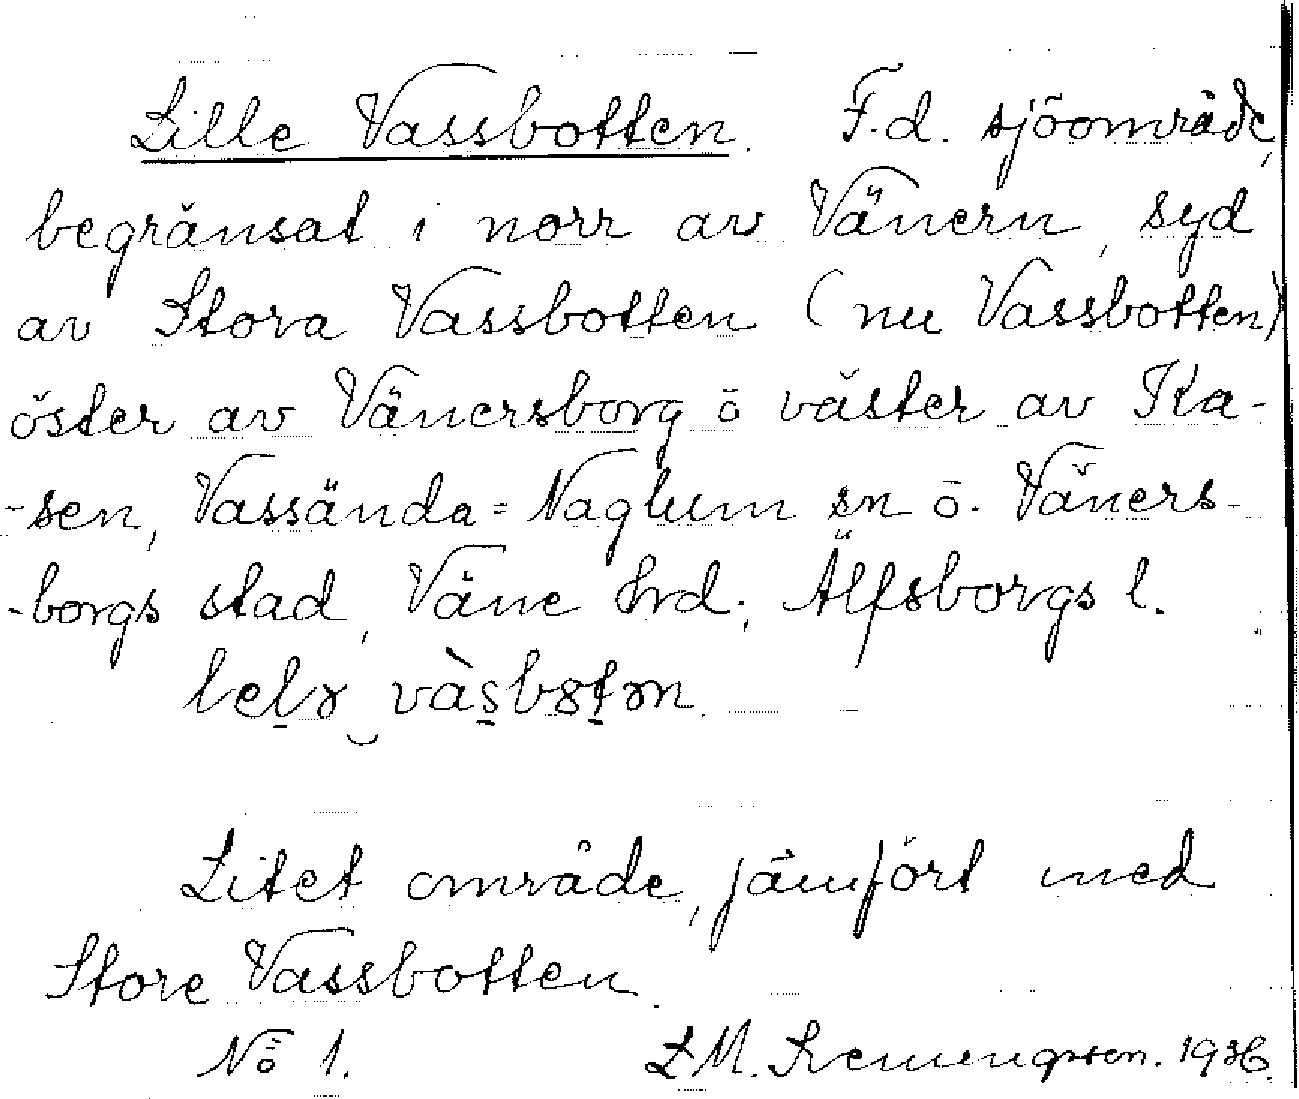 Lille Vassbotten. F.d. sjöområde,
begränsat i norr av Vänern, syd
av Stora Vassbotten (nu Vassbotten)
öster av Vänersborg o väster av Ka-
-sen, Vassända=Naglum sn o. Väners-
-borgs stad, Väne hrd; Älfsborgs l.
Litet område, jämfört med
Store Vassbotten.
No 1. L.M. 1936.